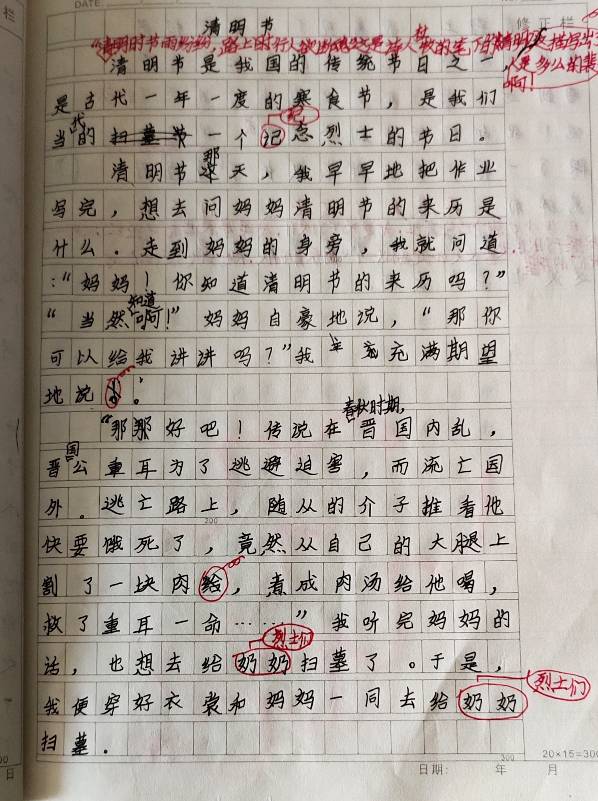 DATE
清明节
修正栏
"清明时节雨纷纷，路上的行人欲断魂"这是诗人杜牧的
人是多么的
啊！
清明节是我国的传统节日之一，
是古代一年一度的寒食节，是我们
当代的一个记念烈士的节日。
记
清明节那天，我早早地把作业
写完，想去问妈妈清明节的来历是
什么．走到妈妈的身旁，我就问道
："妈妈！你知道清明节的来历吗？"
"当然知道啊！"妈妈自豪地说，"那你
可以给我讲讲吗？"我充满期望
地说：
"那好吧！传说在春秋时期，晋国内乱，
晋国公重耳为了逃避迫害，而流亡国
外。逃亡路上，随从的介子推看他
快要饿死了，竟然从自己的大腿上
割了一块肉给，煮成肉汤给他喝，
救了重耳一命……"我听完妈妈的
话，也想去给奶奶扫墓了。于是，
烈士们
我便穿好衣裳和妈妈一同去给奶奶
烈士们
扫墓．
20×15=300
日期： 年 月